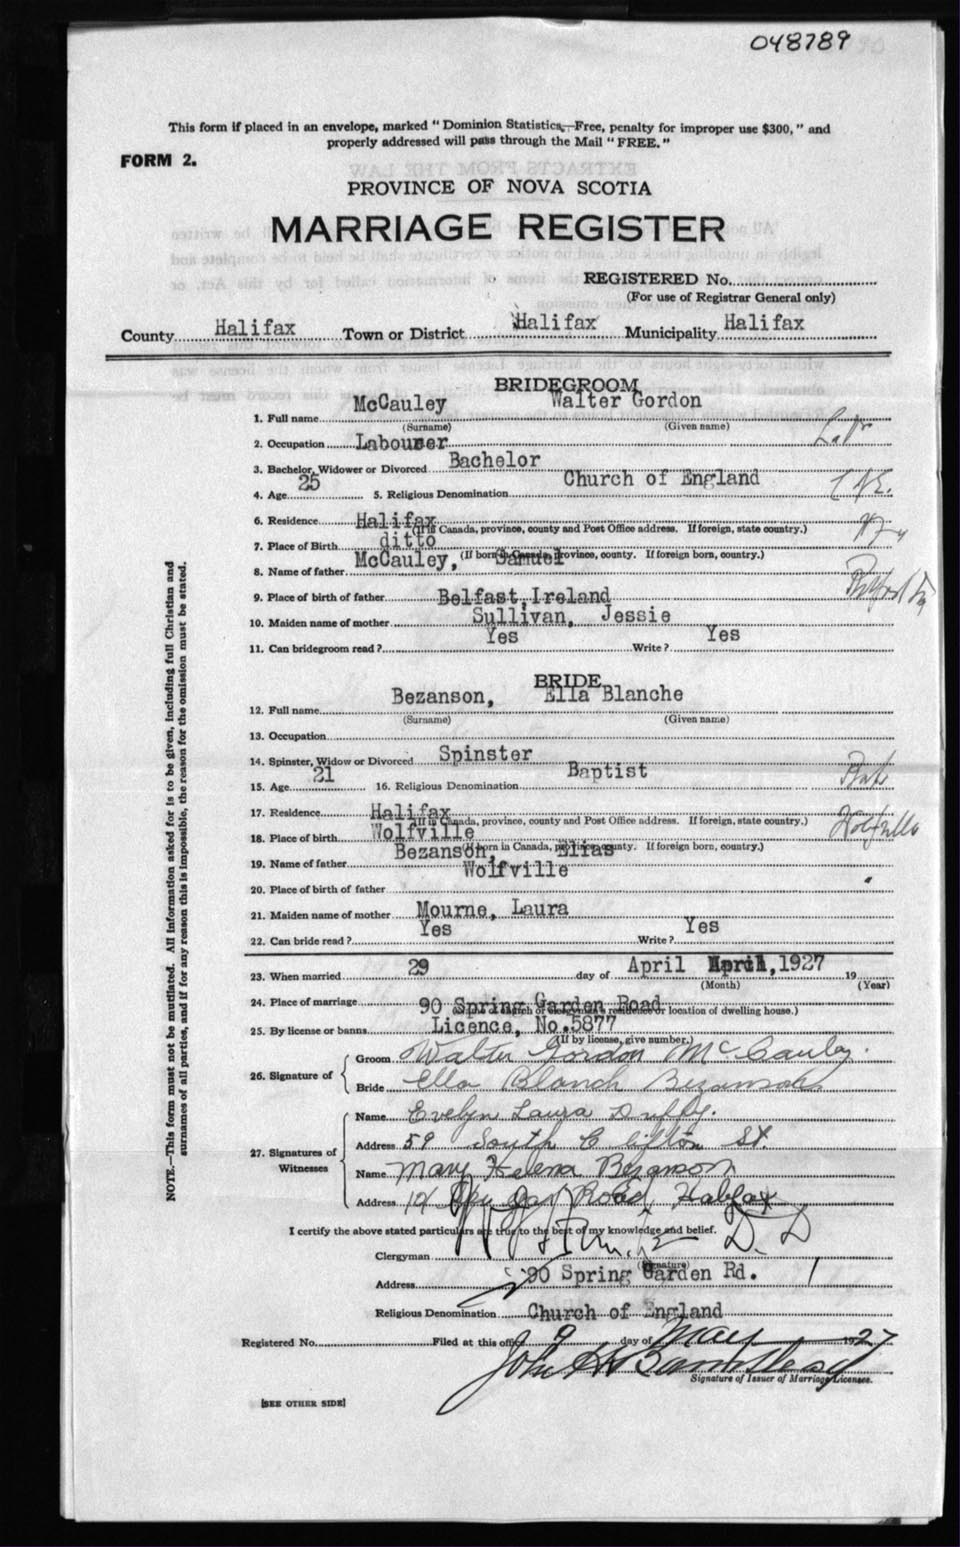 048789
This form if placed in an envelope, marked " Dominion Statistics,—Free, penalty for improper use $300, " and
properly addressed will pass through the Mail " FREE. "
FORM 2.
PROVINCE OF NOVA SCOTIA
MARRIAGE REGISTER
REGISTERED No.
(For use of Registrar General only)
County Halifax Town or District Halifax Municipality Halifax
BRIDEGROOM
1. Full name McCauley Walter Gordon
(Surname) (Given name)
2. Occupation Labourer
3. Bachelor, Widower or Divorced Bachelor
4. Age 25 5. Religious Denomination Church of England
6. Residence Halifax
(If in Canada, province, county and Post Office address. If foreign, state country.)
7. Place of Birth ditto
(If born in Canada, province, county. If foreign born, country.)
8. Name of father McCauley, Samuel
9. Place of birth of father Belfast, Ireland
10. Maiden name of mother Sullivan, Jessie
11. Can bridegroom read ? Yes Write ? Yes
BRIDE
12. Full name Bezanson, Ella Blanche
(Surname) (Given name)
13. Occupation
14. Spinster, Widow or Divorced Spinster
15. Age 21 16. Religious Denomination Baptist
17. Residence Halifax
(If in Canada, province, county and Post Office address. If foreign, state country.)
18. Place of birth Wolfville
(If born in Canada, province, county. If foreign born, country.)
19. Name of father Bezanson, Elias
20. Place of birth of father Wolfville
21. Maiden name of mother Mourne, Laura
22. Can bride read ? Yes Write ? Yes
23. When married 29 day of April April, 1927 19
(Month) (Year)
24. Place of marriage 90 Spring Garden Road
(Name of church or clergyman's residence or location of dwelling house.)
25. By license or banns Licence, No.5877
(If by license, give number.)
26. Signature of
Groom Walter Gordon McCauley
Bride Ella Blanch Bezanson
27. Signatures of Witnesses
Name Evelyn Laura Duffy.
Address 59 South Clifton St.
Name Mary Helena Bezanson
Address Road, Halifax
I certify the above stated particulars are true to the best of my knowledge and belief.
Clergyman D. D
(Signature)
Address 90 Spring Garden Rd.
Religious Denomination Church of England
Registered No. Filed at this office 9 day of May 1927
John H
Signature of Issuer of Marriage Licenses.
[SEE OTHER SIDE]
NOTE.—This form must not be mutilated. All information asked for is to be given, including full Christian and
surnames of all parties, and if for any reason this is impossible, the reason for the omission must be stated.